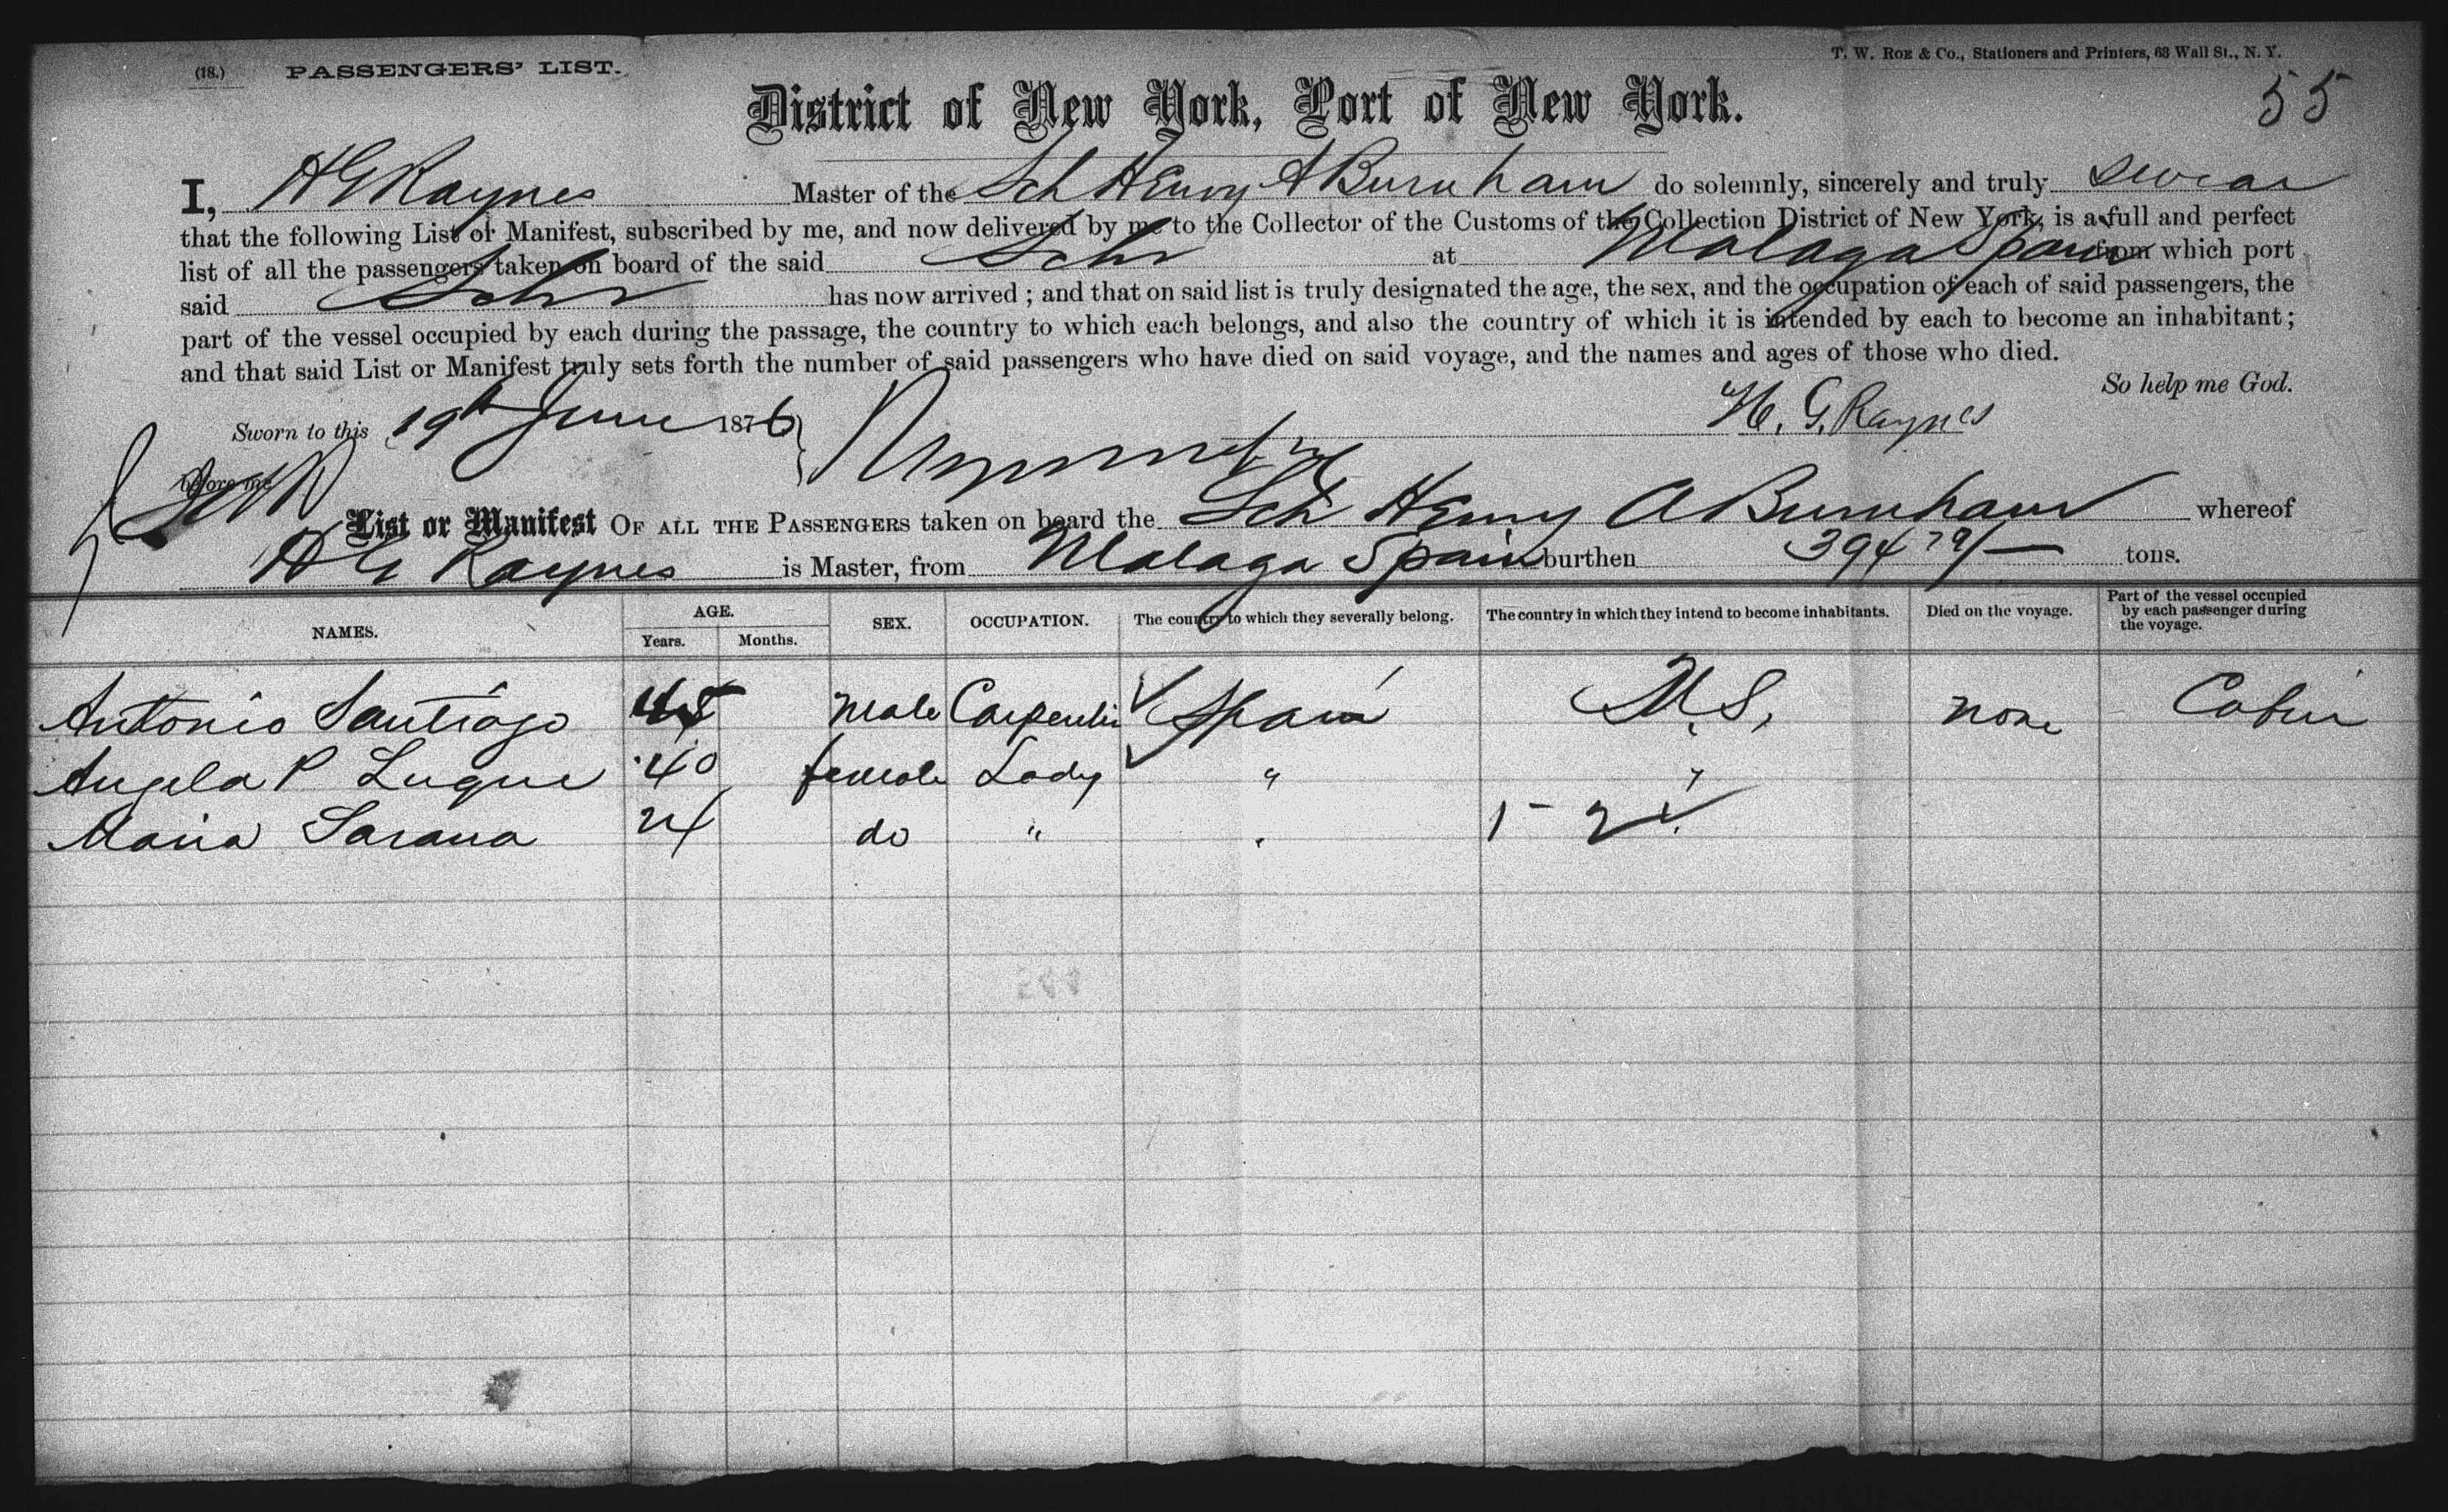 (18.) PASSENGERS' LIST.
T. W. Roe & Co., Stationers and Printers, 63 Wall St., N. Y.
55
District of New York, Port of New York.
I, H G Raynes Master of the Sch Henry A Burnham do solemnly, sincerely and truly swear
that the following List or Manifest, subscribed by me, and now delivered by me to the Collector of the Customs of the Collection District of New York, is a full and perfect
list of all the passengers taken on board of the said Schr at Malaga Spain from which port
said Schr has now arrived ; and that on said list is truly designated the age, the sex, and the occupation of each of said passengers, the
part of the vessel occupied by each during the passage, the country to which each belongs, and also the country of which it is intended by each to become an inhabitant ;
and that said List or Manifest truly sets forth the number of said passengers who have died on said voyage, and the names and ages of those who died.
So help me God.
Sworn to this 19th June 1876 } H. G. Raynes
before me
List or Manifest OF ALL THE PASSENGERS taken on board the Sch Henry A Burnham whereof
H G Raynes is Master, from Malaga Spain burthen 394 79/ — tons.
NAMES. AGE. Years. Months. SEX. OCCUPATION. The country to which they severally belong. The country in which they intend to become inhabitants. Died on the voyage. Part of the vessel occupied by each passenger during the voyage.
Antonio Santiago 45 Male Carpenter Spain U.S. none Cabin
Angela P Luque 40 female Lady " "
Maria Sarana 24 do " "